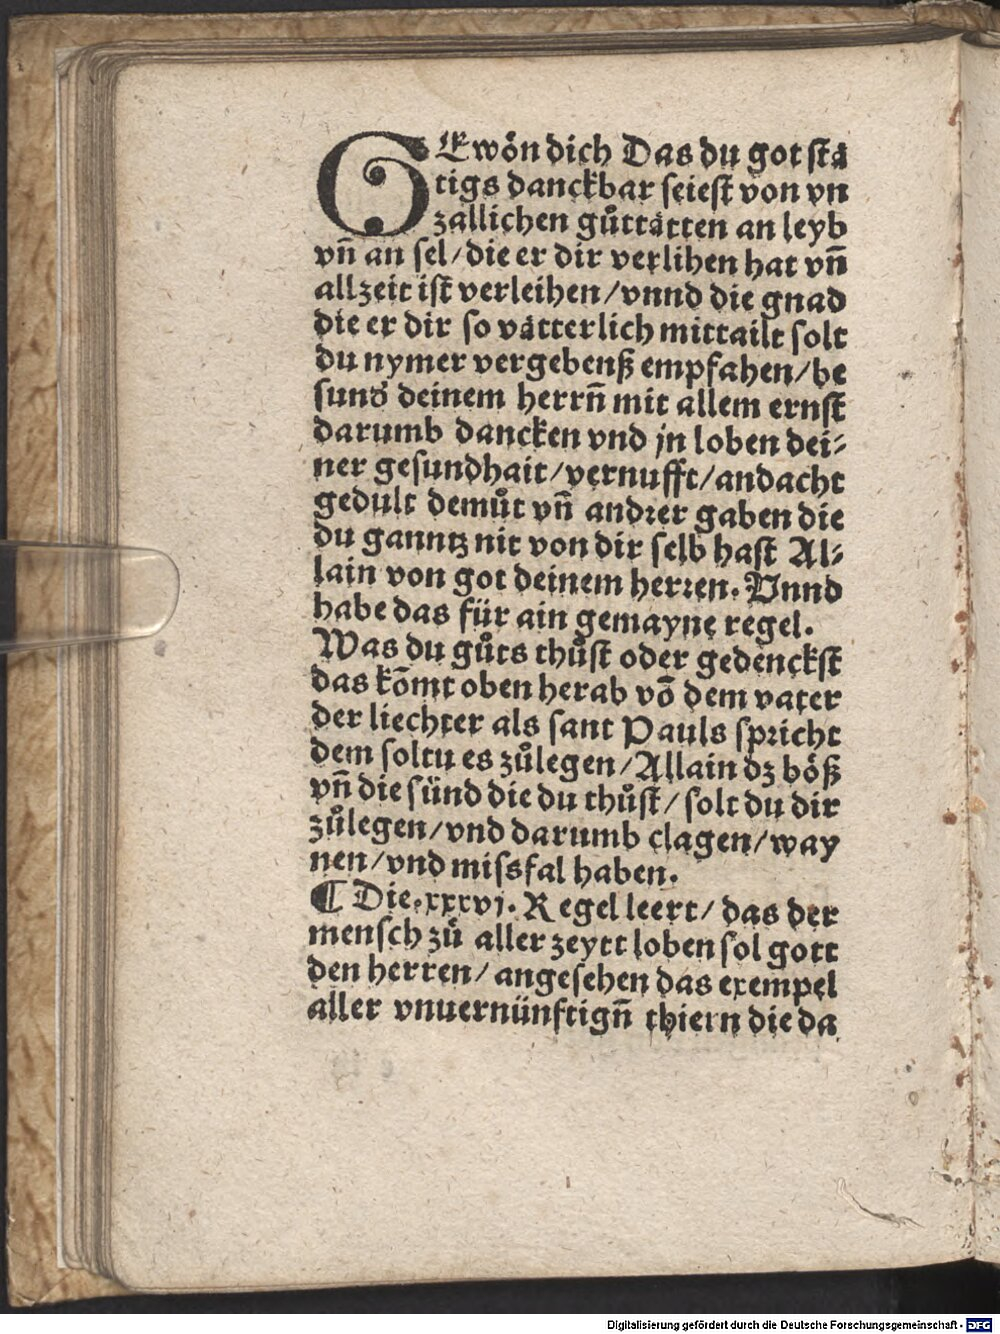 GEwön dich Das du got stä
tigs danckbar seiest von vn
zallichen gůttätten an leyb
vn̄ an sel/die er dir verlihen hat vn̄
allzeit ist verleihen/vnnd die gnad
die er dir so vätterlich mittailt solt
du nymer vergebenß empfahen/be
sund͛ deinem herrn̄ mit allem ernst
darumb dancken vnd jn loben dei⸗
ner gesundhait/vernufft/andacht
gedult demůt vn̄ andrer gaben die
du ganntz nit von dir selb hast Al⸗
lain von got deinem herren. Vnnd
habe das für ain gemayne regel.
Was du gůts thůst oder gedenckst
das kōmt oben herab vō dem vater
der liechter als sant Pauls spricht
dem soltu es zůlegen/Allain dz böß
vn̄ die sünd die du thůst/solt du dir
zůlegen/vnd darumb clagen/way
nen/vnd missfal haben.
¶ Die.xxxvj. Regel leert/das der
mensch zů aller zeytt loben sol gott
den herren/angesehen das exempel
aller vnuernünftign̄ thiern die da
Digitalisierung gefördert durch die Deutsche Forschungsgemeinschaft - DFG